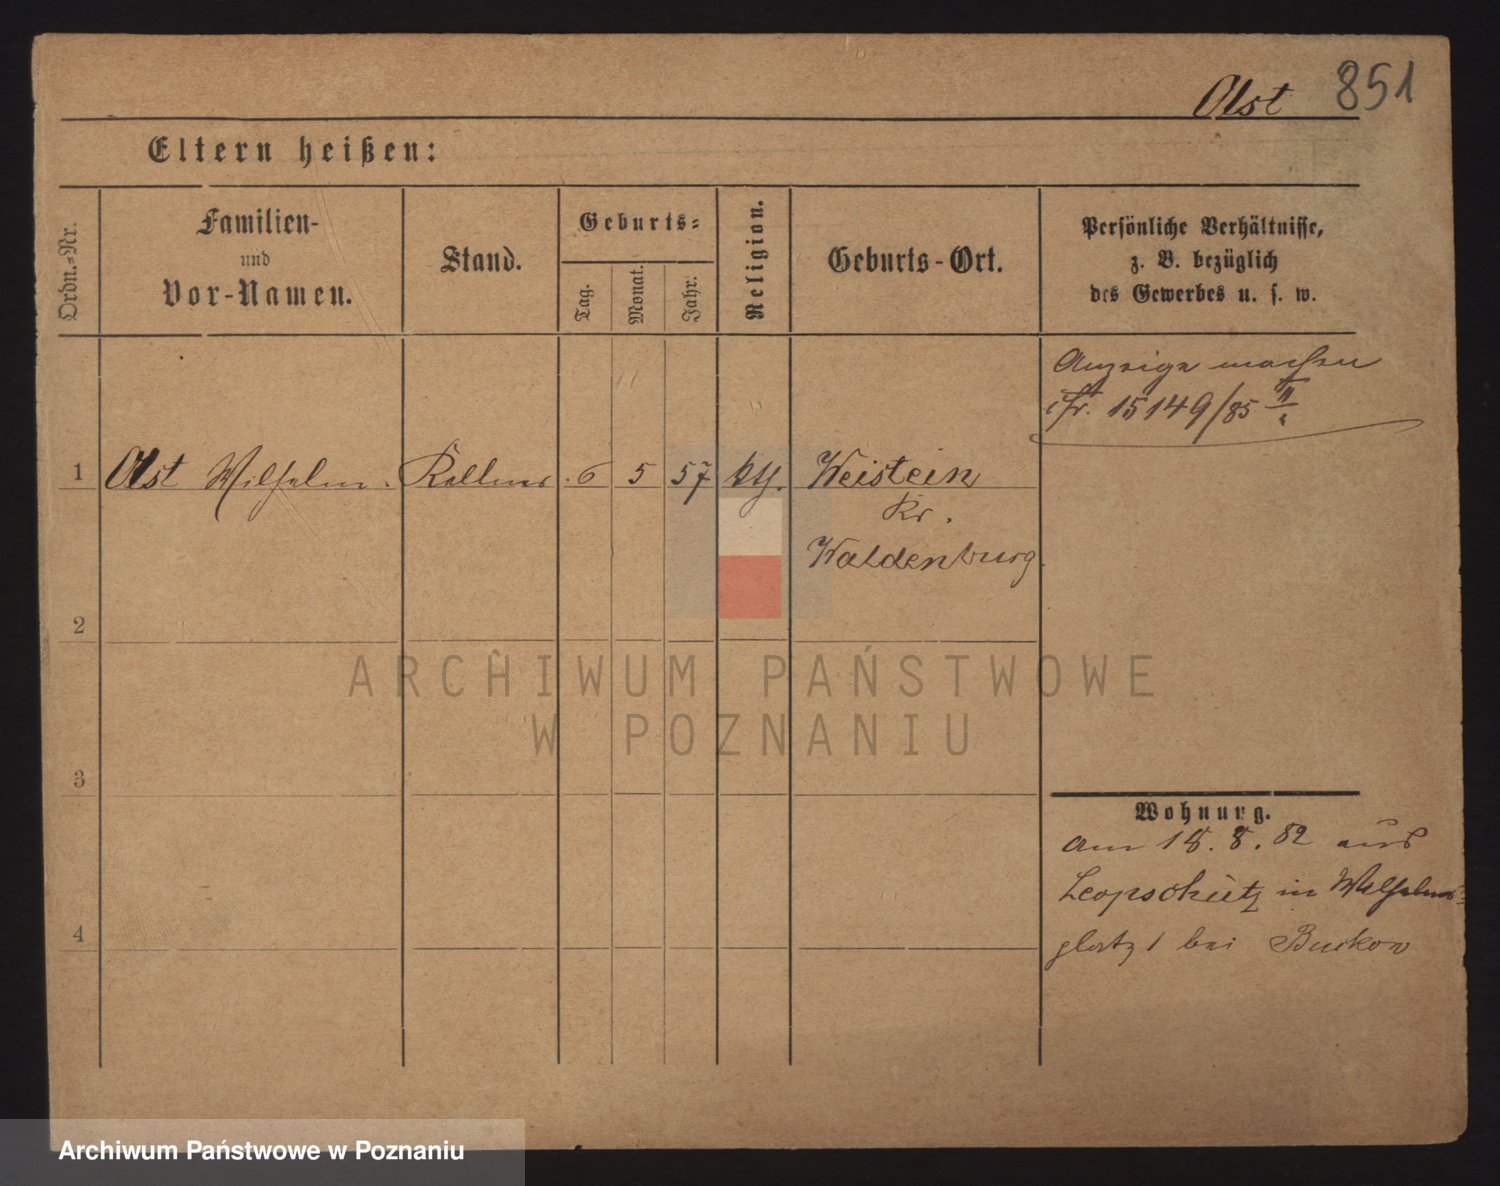 Olst 851
Eltern heißen:
Ordn.-Nr.
Familien-
und
Vor-Namen.
Stand.
Geburts-
Tag.
Monat.
Jahr.
Religion.
Geburts-Ort.
Persönliche Verhältnisse,
z. B. bezüglich
des Gewerbes u. s. w.
Anzeige machen
15149/85 II
1 Olst Wilhelm. Kellner 6 5 57 kth. Weistein
Kr.
Waldenburg.
2
3
4
Wohnung.
am 18. 8. 82 aus
Leopschütz in Wilhelms-
bei Buckow
ARCHIWUM PAŃSTWOWE
W POZNANIU
Archiwum Państwowe w Poznaniu